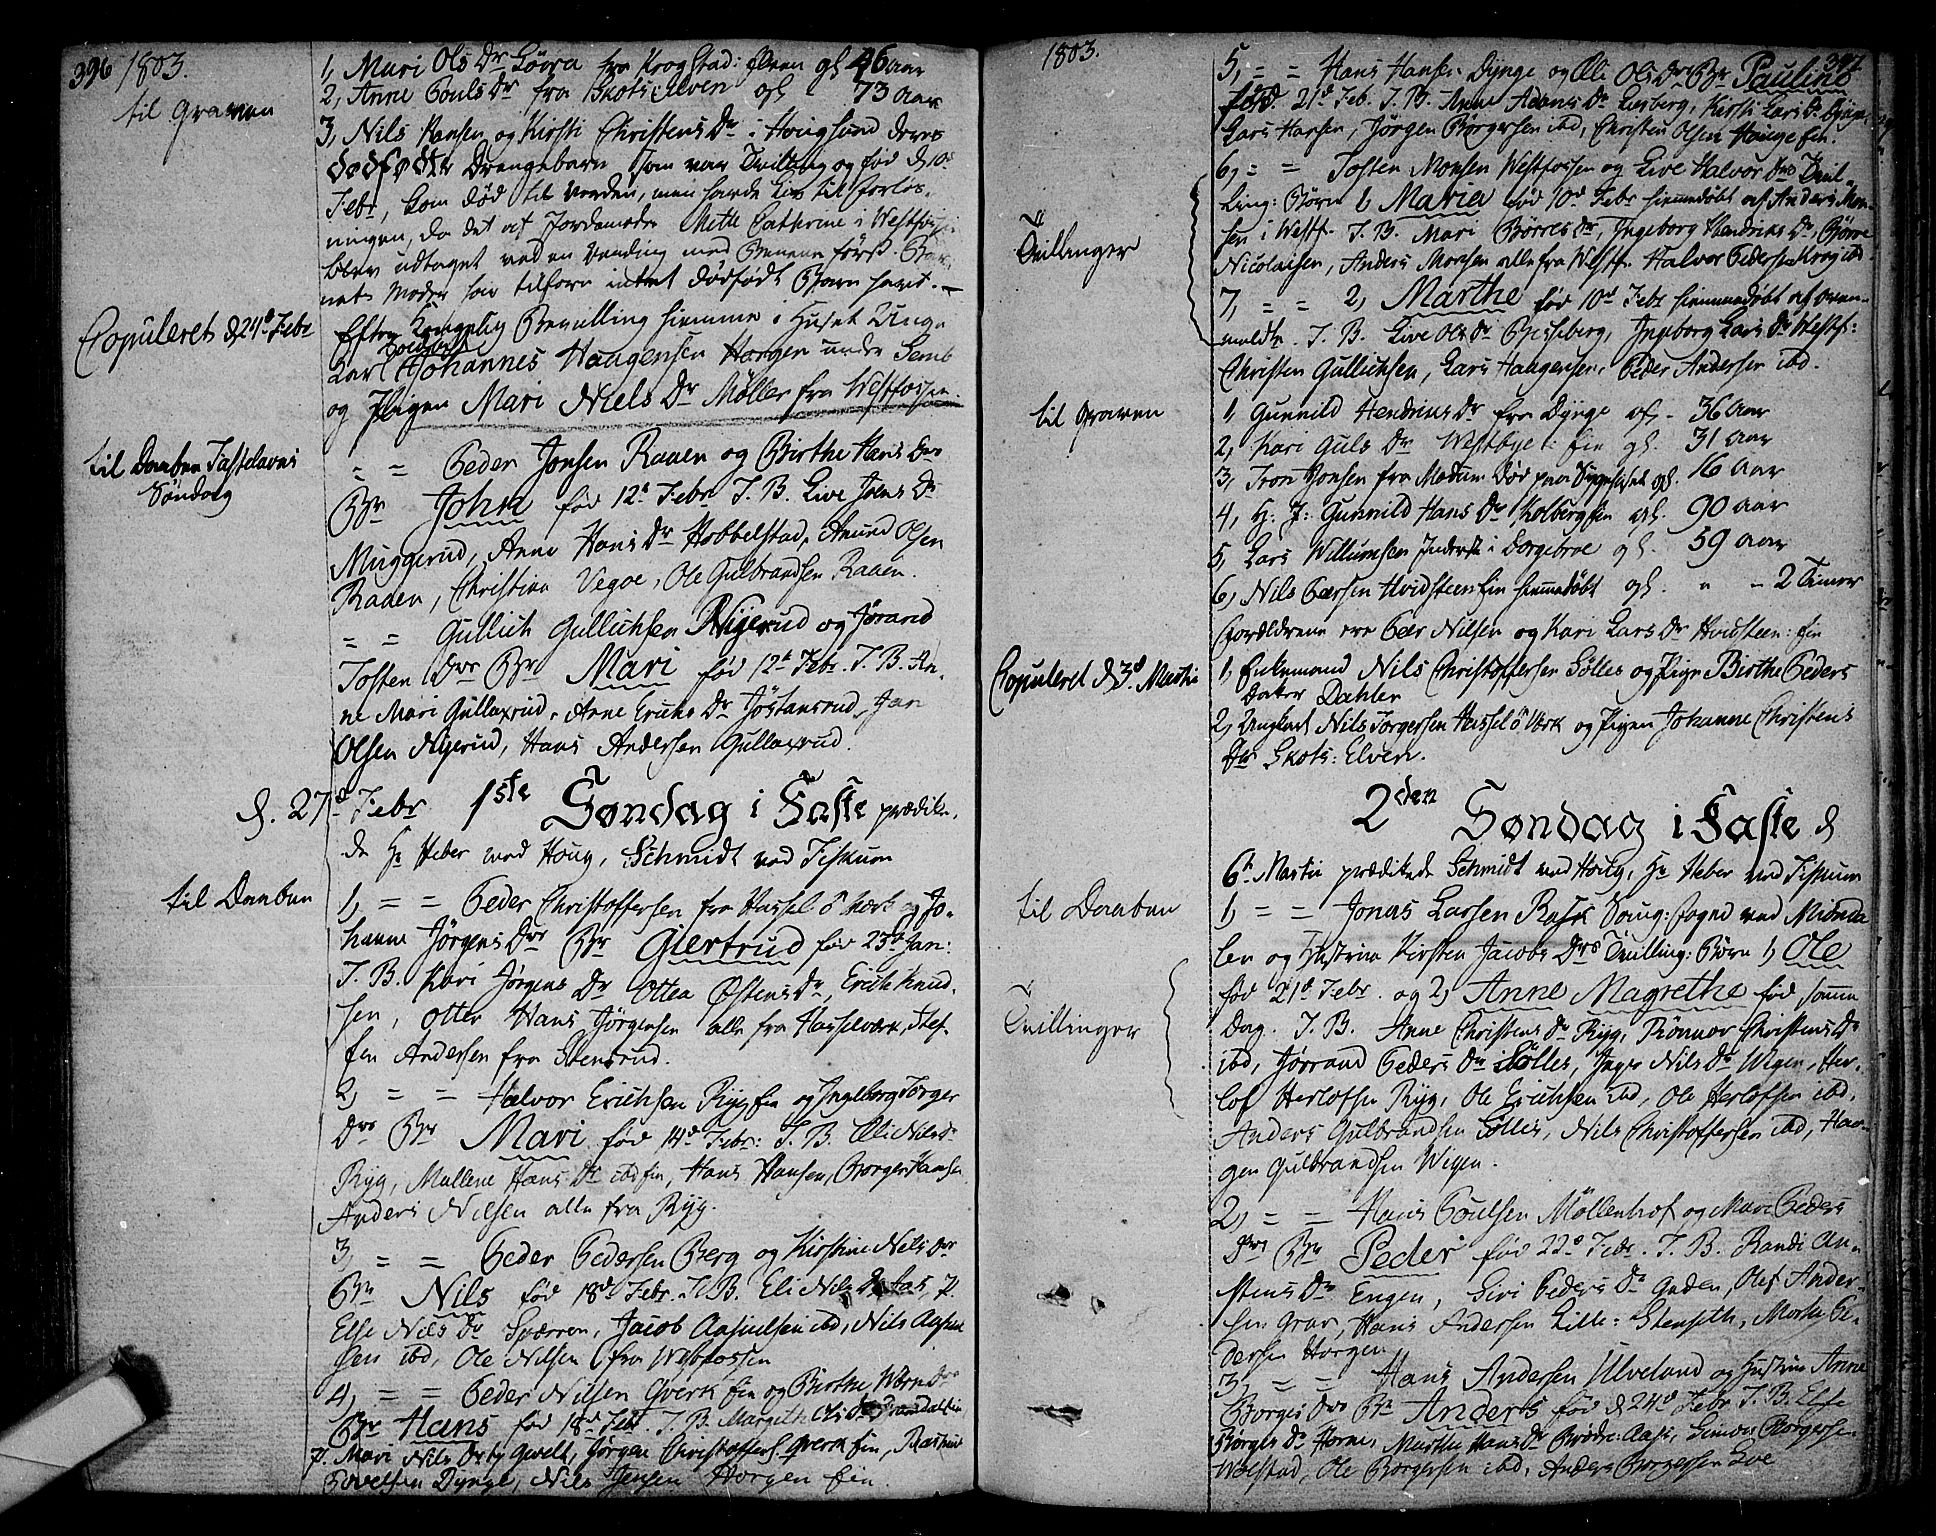 396 1803.
til Graven
1, Mari Ols Dr Løvra fra Krogstad: Elven gl 46 aar
2, Anne Pouls Dr fra Skots Elven gl 73 Aar
3, Nils Hansen og Kirsti Christens Dr i Hougsund deres
dødfødte Drengebarn som var Tvilling og fød d 10d
Febr, kom død til Verden, men havde Liv til forløs-
ningen, da det af Jordemodr Mette Cathrine i Westfossen
blev udtaget ved en Vending med Benene først. Bar-
nets Moder har tilforn intet dødfødt Barn havt.
Copuleret d 24d Febr
Efter Kongelig Bevilling hiemme i Huset Unge
Karl Johannes Haagensen Horgen under Semb
og Pigen Mari Niels Dr Møller fra Westfossen.
til Daaben Fastelavns
Søndag
= = Peder Jonsen Raaen og Birthe Hans Drs
Br John fød 12d Febr. F. B. Live Joens Dr
Muggerud, Anne Hans Dr Hobbelstad, Amund Olsen
Raaen, Christian Vegoe, Ole Gulbrandsen Raaen.
= = Gullich Gullichsen Nygerud og Jørand
Tosten Drs Br Mari fød 12d Febr. F. B. An-
ne Mari Gullaxrud, Anne Erichs Dr Jøstansrud, Jan
Olsen Nyerud, Hans Andersen Gullaxrud.
d. 27d Febr 1ste Søndag i Faste prædike-
de Hr Heber ved Houg, Schmidt ved Fiskum
til Daaben
1, = = Peder Christoffersen fra Hassel ö Værk og Jo-
hanne Jørgens Drs Br Giertrud fød 23d Jan:
F. B. Kari Jørgens Dr Ottea Østens Dr, Erich Knud-
sen, Otter Hans Jørgensen alle fra Hasselværk, Stef-
fen Andersen fra Stensrud.
2, = = Halvor Erichsen Ryg fin og Ingeborg Torger
Drs Br Mari fød 14d Febr: F. B. Eli Nils Dr
Ryg, Mallene Hans Dr ibd fin, Hans Hansen, Borger Hansen
Anders Nilsen alle fra Ryg.
3, = = Peder Pedersen Berg og Kirstine Nels Drs
Br Nils fød 18d Febr. F. B. Eli Nils Dr Aas, P.
Else Nils Dr Sværren, Jacob Aasulsen ibd, Nils Aasul
sen ibd, Ole Nilsen fra Westfossen
4, = = Peder Nilsen Qverk fin og Birthe Wærn Drs
Br Hans fød 18d Febr. F. B. Margith Ols Dr
P. Mari Nils Dr Qwelt, Jørgen Christoffers. Qverk fin, Rasmus
Povelsen Dynge, Nils Jensen Horgen fin.
1803. 397
5, = = Hans Hansen Dynge og Eli Ols Dr Br Pauline
fød 21d Feb. F. B. Anne Adams Dr Lurberg, Kirsti Lars Dr Dynge,
Lars Hansen, Jörgen Börgersen ibd, Christen Olsen Houge fin.
Tvillinger
6, = = Tosten Monsen Westfossen og Live Halvor Drs Tvil-
ling: Børn 1, Maria fød 10d Febr hiemmedøbt af Anders Mon-
sen i Westf. F. B. Mari Börres Dr, Ingeborg Hendrics Dr Børre
Nicolaisen, Anders Monsen alle fra Westf. Halvor Pedersen Krog ibd
7, = = 2, Marthe fød 10d Febr hiemmedøbt af oven-
meldte. F. B. Live Ols Dr Bisseberg, Ingeborg Lars Dr Westf:
Christen Gullichsen, Lars Haagensen, Peder Andersen ibd.
til Graven
1, Gunnild Hendrics Dr fra Dynge gl. 36 Aar
2, Kari Guls Dr Westbye: fin gl. 31 aar
3, Iron Jonsen fra Modum død paa Sygehuset gl. 16 aar
4, H: J: Gunnild Hans Dr Kolberg fin gl. 90 aar
5, Lars Willumsen Inderst i Dorgebroe gl. 59 aar
6, Nils Peersen Hvidsteen fin hiemmedøbt gl. " - 2 Timer
Forældrene ere Peer Nilsen og Kari Lars Dr Hvidsteen: fin
Copuleret d 3d. Martii
1, Enkemand Nils Christoffersen Sölles og Pige Birthe Peders
Dater Dahler
2, Ungkarl Nils Torgersen Hassel ö Værk og Pigen Johanne Christens
Dr Skots: Elven.
2den Søndag i Faste d
6te Martii prædikede Schmidt ved Houg, Hr Heber ved Fiskum
til Daaben
1, = = Jonas Larsen Rask Voing: fogd ved Miønda
len og Hustrue Kirsten Jacobs Drs Tvilling: Börn 1, Ole
Tvillinger
fød 21d Febr. og 2, Anne Magrethe fød samme
Dag. F. B. Anne Christens Dr Ryg, Rönnov Christens Dr
ibd, Jørrand Peders Dr Sölles, Inger Nils Dr Wigen, Her-
lof Herlofsen Ryg, Ole Erichsen ibd, Ole Herlofsen ibd,
Anders Gulbrandsen Sölles, Nils Christoffersen ibd, Haa-
gen Gulbrandsen Wigen.
2, = = Hans Poulsen Möllenhof og Mari Peders
Drs Br Peder fød 22d Febr. F. B. Randi An-
stens Dr Engen, Siri Peders Dr Enden, Olef Ander-
sen Grav, Hans Andersen Lille: Stenseth, Morten Pe-
dersen Horgen
3, = = Hans Andersen Ulveland og Hustrue Anne
Borges Drs Br Anders fød d 24d Febr. F. B. Else
Börges Dr Horne, Marthe Hans Dr Brødre: Aass, Simon Borgersen
Wolstad, Ole Borgersen ibd, Anders Borgersen Loe